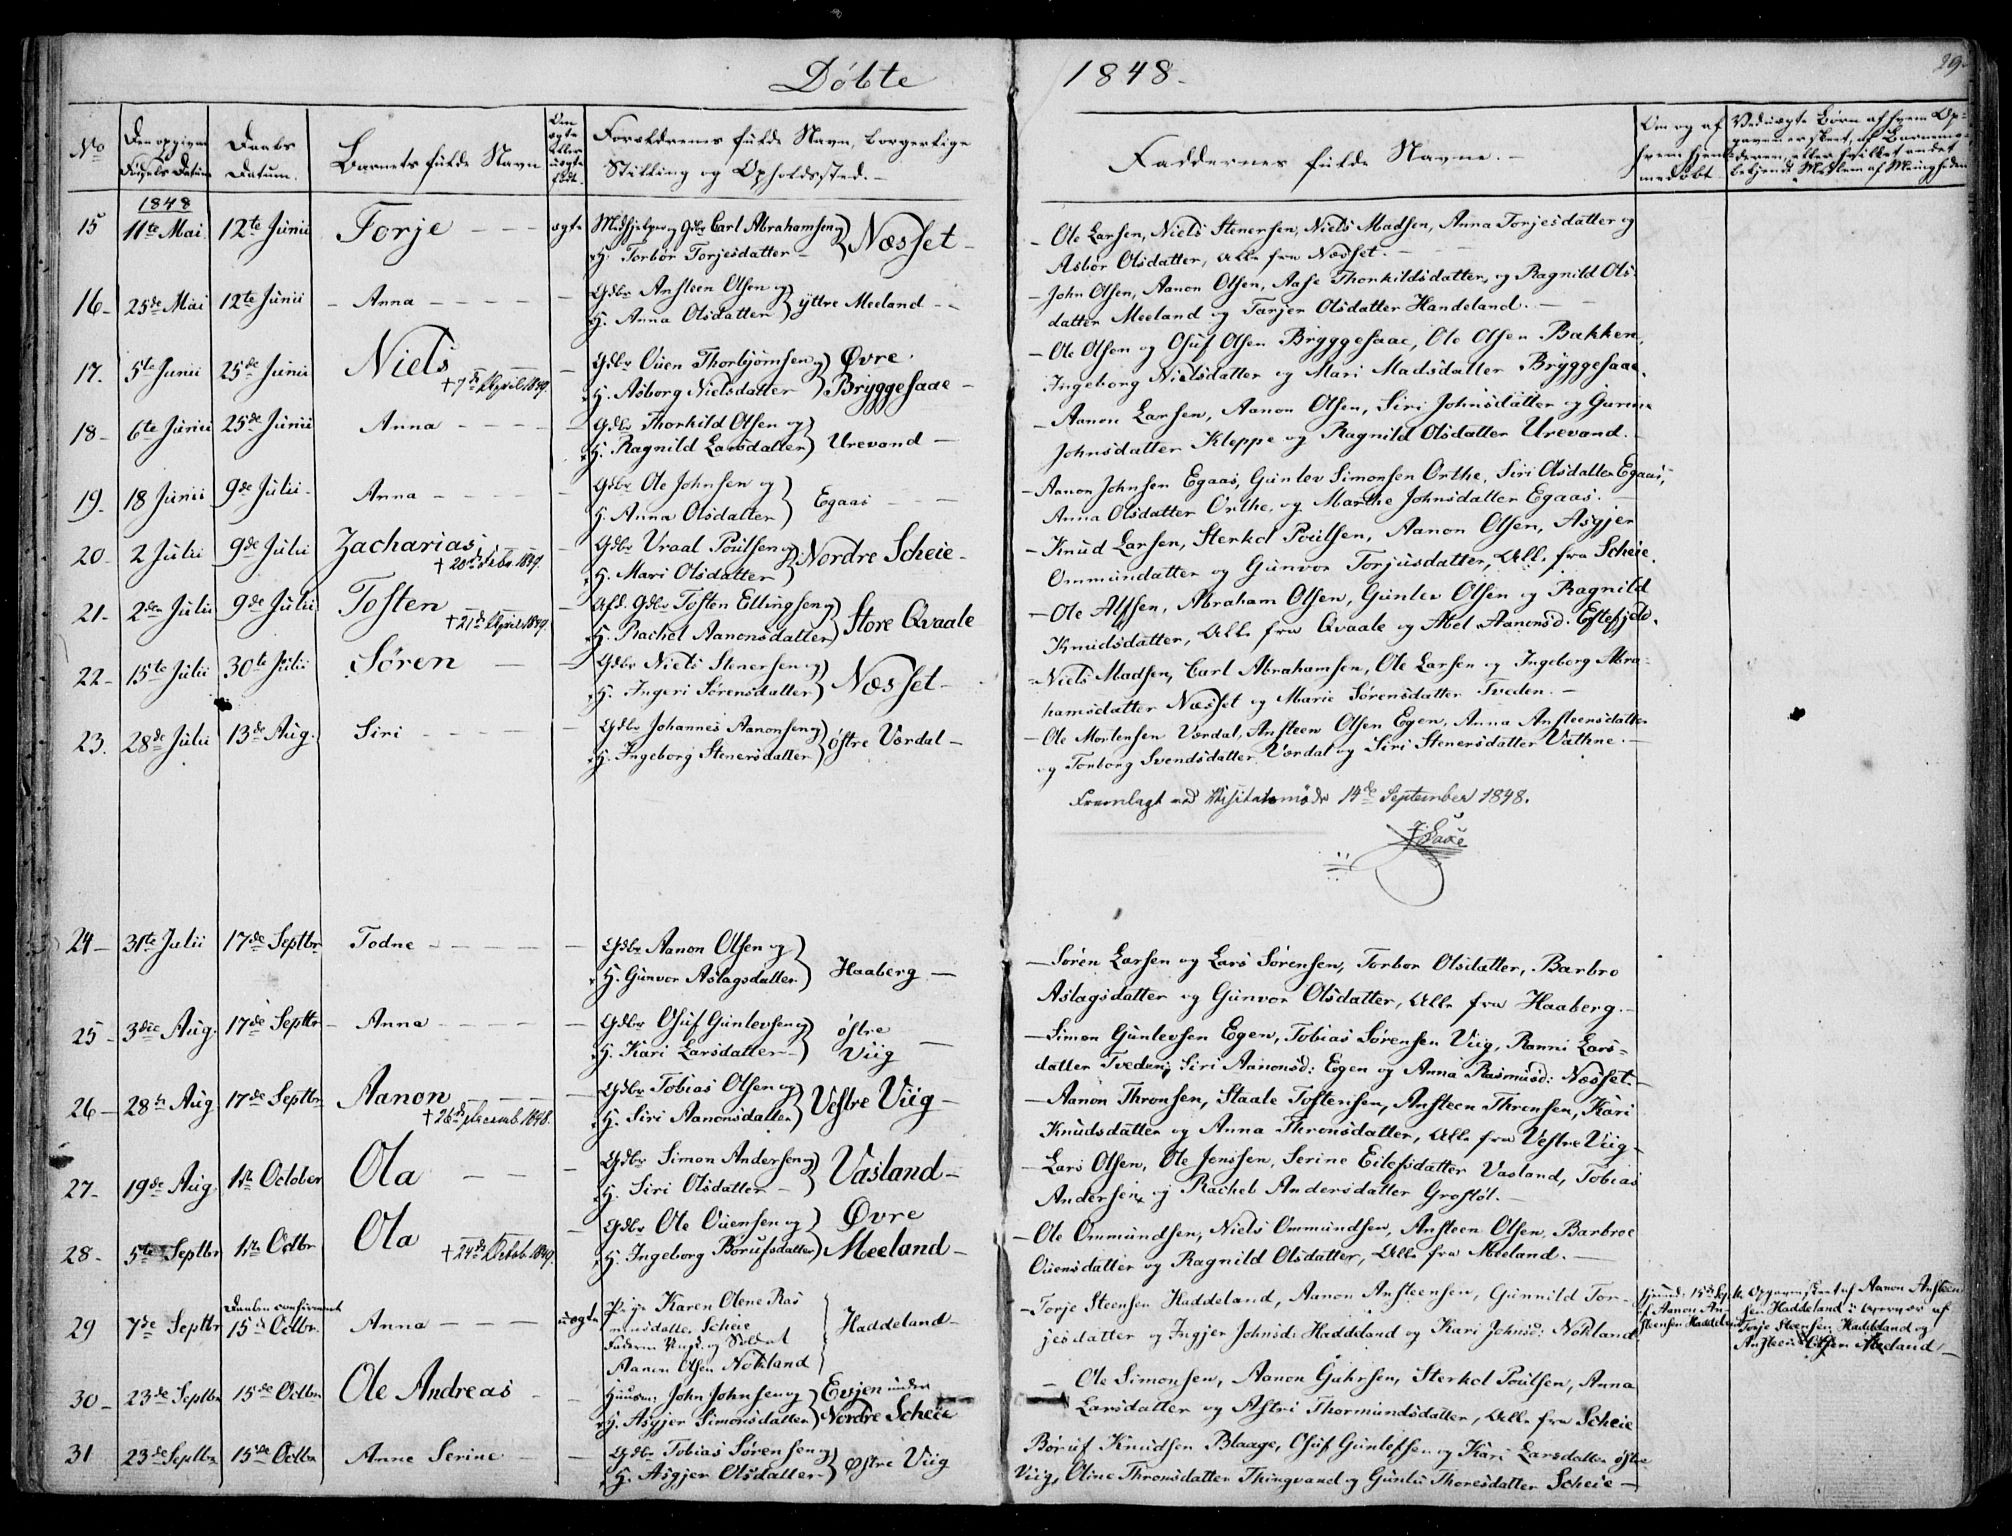 Døbte 1848.
29.
No
Den opgivne Fødsels Datum
Daabs Datum.
Barnets fulde Navn
Om ægte eller uægte født.
Forældrenes fulde Navn, borgerlige Stilling og Opholdssted.
Faddernes fulde Navne.
Om og af hvem hjemmedøbt
Ved uægte Børn af hvem Opgaven er skeet, af Barnemoderen, eller hvilket andet bekjendt Medlem af Menigheden
1848
15 11te Mai 12te Junii Torje ægte Medhjelper og Gdbr Carl Abrahamsen og
H. Torbor Torjesdatter Næsset
Ole Larsen, Niels Stenersen, Niels Madsen, Anna Torjesdatter og
Asbor Olsdatter, Alle fra Næsset.
16 25de Mai 12te Junii Anna Gdbr Ansteen Olsen og
H. Anna Olsdatter yttre Meeland
John Olsen, Aanon Olsen, Aase Thorkildsdatter, og Ragnild Ols-
datter Meeland og Tarjer Olsdatter Handeland.
17. 5te Junii 25de Junii Niels Gdbr Ouen Thorbjørnsen og Øvre
† 7de April 1849. H. Asborg Nielsdatter Bryggesaae
Ole Olsen og Osuf Olsen Bryggesaae, Ole Olsen Bakken,
Ingeborg Nielsdatter og Mari Madsdatter Bryggesaae.
18 6te Junii 25de Junii Anna Gdbr Thorkild Olsen og
H. Ragnild Larsdatter Urevand
Aanon Larsen, Aanon Olsen, Siri Johnsdatter og Gurine
Johnsdatter Kleppe og Ragnild Olsdatter Urevand.
19. 18 Junii 9de Julii Anna Gdbr Ole Johnsen og
H. Anna Olsdatter Egaas
Aanon Johnsen Egaas, Gunlev Simonsen Orthe, Siri Olsdatter Egaas,
Anna Olsdatter Orthe, og Marthe Johnsdatter Egaas.
20 2 Julii 9de Julii Zacharias Gdbr Vraal Poulsen og
H. Mari Olsdatter Nordre Scheie
Knud Larsen, Sterkol Poulsen, Aanon Olsen, Asgjer
Ommundatter og Gunvor Torjusdatter, Alle fra Scheie.
21. 2den Julii 9de Julii Tosten Afd. Gdbr Tosten Ellingsen og
† 21de April 1849 H. Rachel Aanonsdatter Store Qvaale
Ole Alfsen, Abraham Olsen, Gunlev Olsen og Ragnild
Knudsdatter, Alle fra Qvaale og Abel Aanonsd: Eftefjeld.
22 15te Julii 30te Julii Søren Gdbr Niels Stenersen og
H. Ingeri Sørensdatter Næsset
Niels Madsen, Carl Abrahamsen, Ole Larsen og Ingeborg Abra-
hamsdatter Næsset og Marie Sørensdatter Tveden.
23. 28de Julii 13de Aug. Siri Gdbr Johannes Aanonsen og
H. Ingeborg Stenersdatter østre Værdal
Ole Mortensen Værdal, Ansteen Olsen Egen, Anna Ansteensdatter
og Tonborg Svendsdatter Værdal og Siri Stenersdatter Vathne.
Fremlagt ved Visitatsmøde 14de September 1848.
24 31te Julii 17de Septbr Todne Gdbr Aanon Olsen og
H. Gunvor Aslagsdatter Haaberg
Søren Larsen og Lars Sørensen, Torbor Olsdatter, Barbro
Aslagsdatter og Gunvor Olsdatter, Alle fra Haaberg.
25 3die Aug. 17de Septbr Anna Gdbr Osuf Gunlevsen og
H. Kari Larsdatter østre Viig
Simon Gunlevsen Egen, Tobias Sørensen Viig, Ranni Lars-
datter Tveden, Siri Aanonsd: Egen og Anna Rasmusd: Næsset.
26 28de Aug 17de Septbr Aanon Gdbr Tobias Olsen og
† 26de Decemb. 1848. H. Siri Aanonsdatter Vestre Viig
Aanon Thronsen, Staale Tostensen, Ansteen Thronsen, Kari
Knudsdatter og Anna Thronsdatter, Alle fra Vestre Viig
27 19de Aug. 1ste October Ola Gdbr Simon Andersen og
H. Siri Olsdatter Vasland
Lars Olsen, Ole Jenssen, Serine Eilefsdatter Vasland, Tobias
Andersen og Rachel Andersdatter Grostøl.
28 5te Septbr 1ste Octbr Ola Gdbr Ole Ouensen og Øvre
† 24de Octob. 1849. H. Ingeborg Børufsdatter Meeland
Ole Ommundsen, Niels Ommundsen, Ansteen Olsen, Barbroe
Ouensdatter og Ragnild Olsdatter, Alle fra Meeland.
29 7de Septbr Daaben confirmeret 15de Octbr. Anna uægte Pige Karen Olene Ras
musdatter Scheie
Faderen Ungk. og Soldat
Aanon Olsen Nokland
Haddeland
Torje Steensen Haddeland, Aanon Ansteensen, Gunnild Tor-
jesdatter og Ingjer Johnsd: Haddeland og Kari Johnsd: Nokland
hjemd: 15de Sept. af Aanon Ansteensen Haddeland
Opgaven skeet af Aanon Ansteensen Haddeland i Overvær af Torje Steensen Haddeland og Ansteen Olsen Meeland
30 23de Septbr 15de Octbr Ole Andreas Huusm: John Johnsen og Evjen under
H. Asgjer Simonsdatter Nordre Scheie
Ole Simonsen, Aanon Guhrsen, Sterkol Poulsen, Anna
Larsdatter og Astri Thormundsdatter, Alle fra Scheie
31 23de Septbr 15de Octbr Anne Serine Gdbr Tobias Sørensen og
H. Asgjer Olsdatter Østre Viig
Børuf Knudsen Blaage, Osuf Gunlefsen og Kari Larsdatter østre
Viig, Oline Thronsdatter Thingvand og Gunlu Thoresdatter Scheie